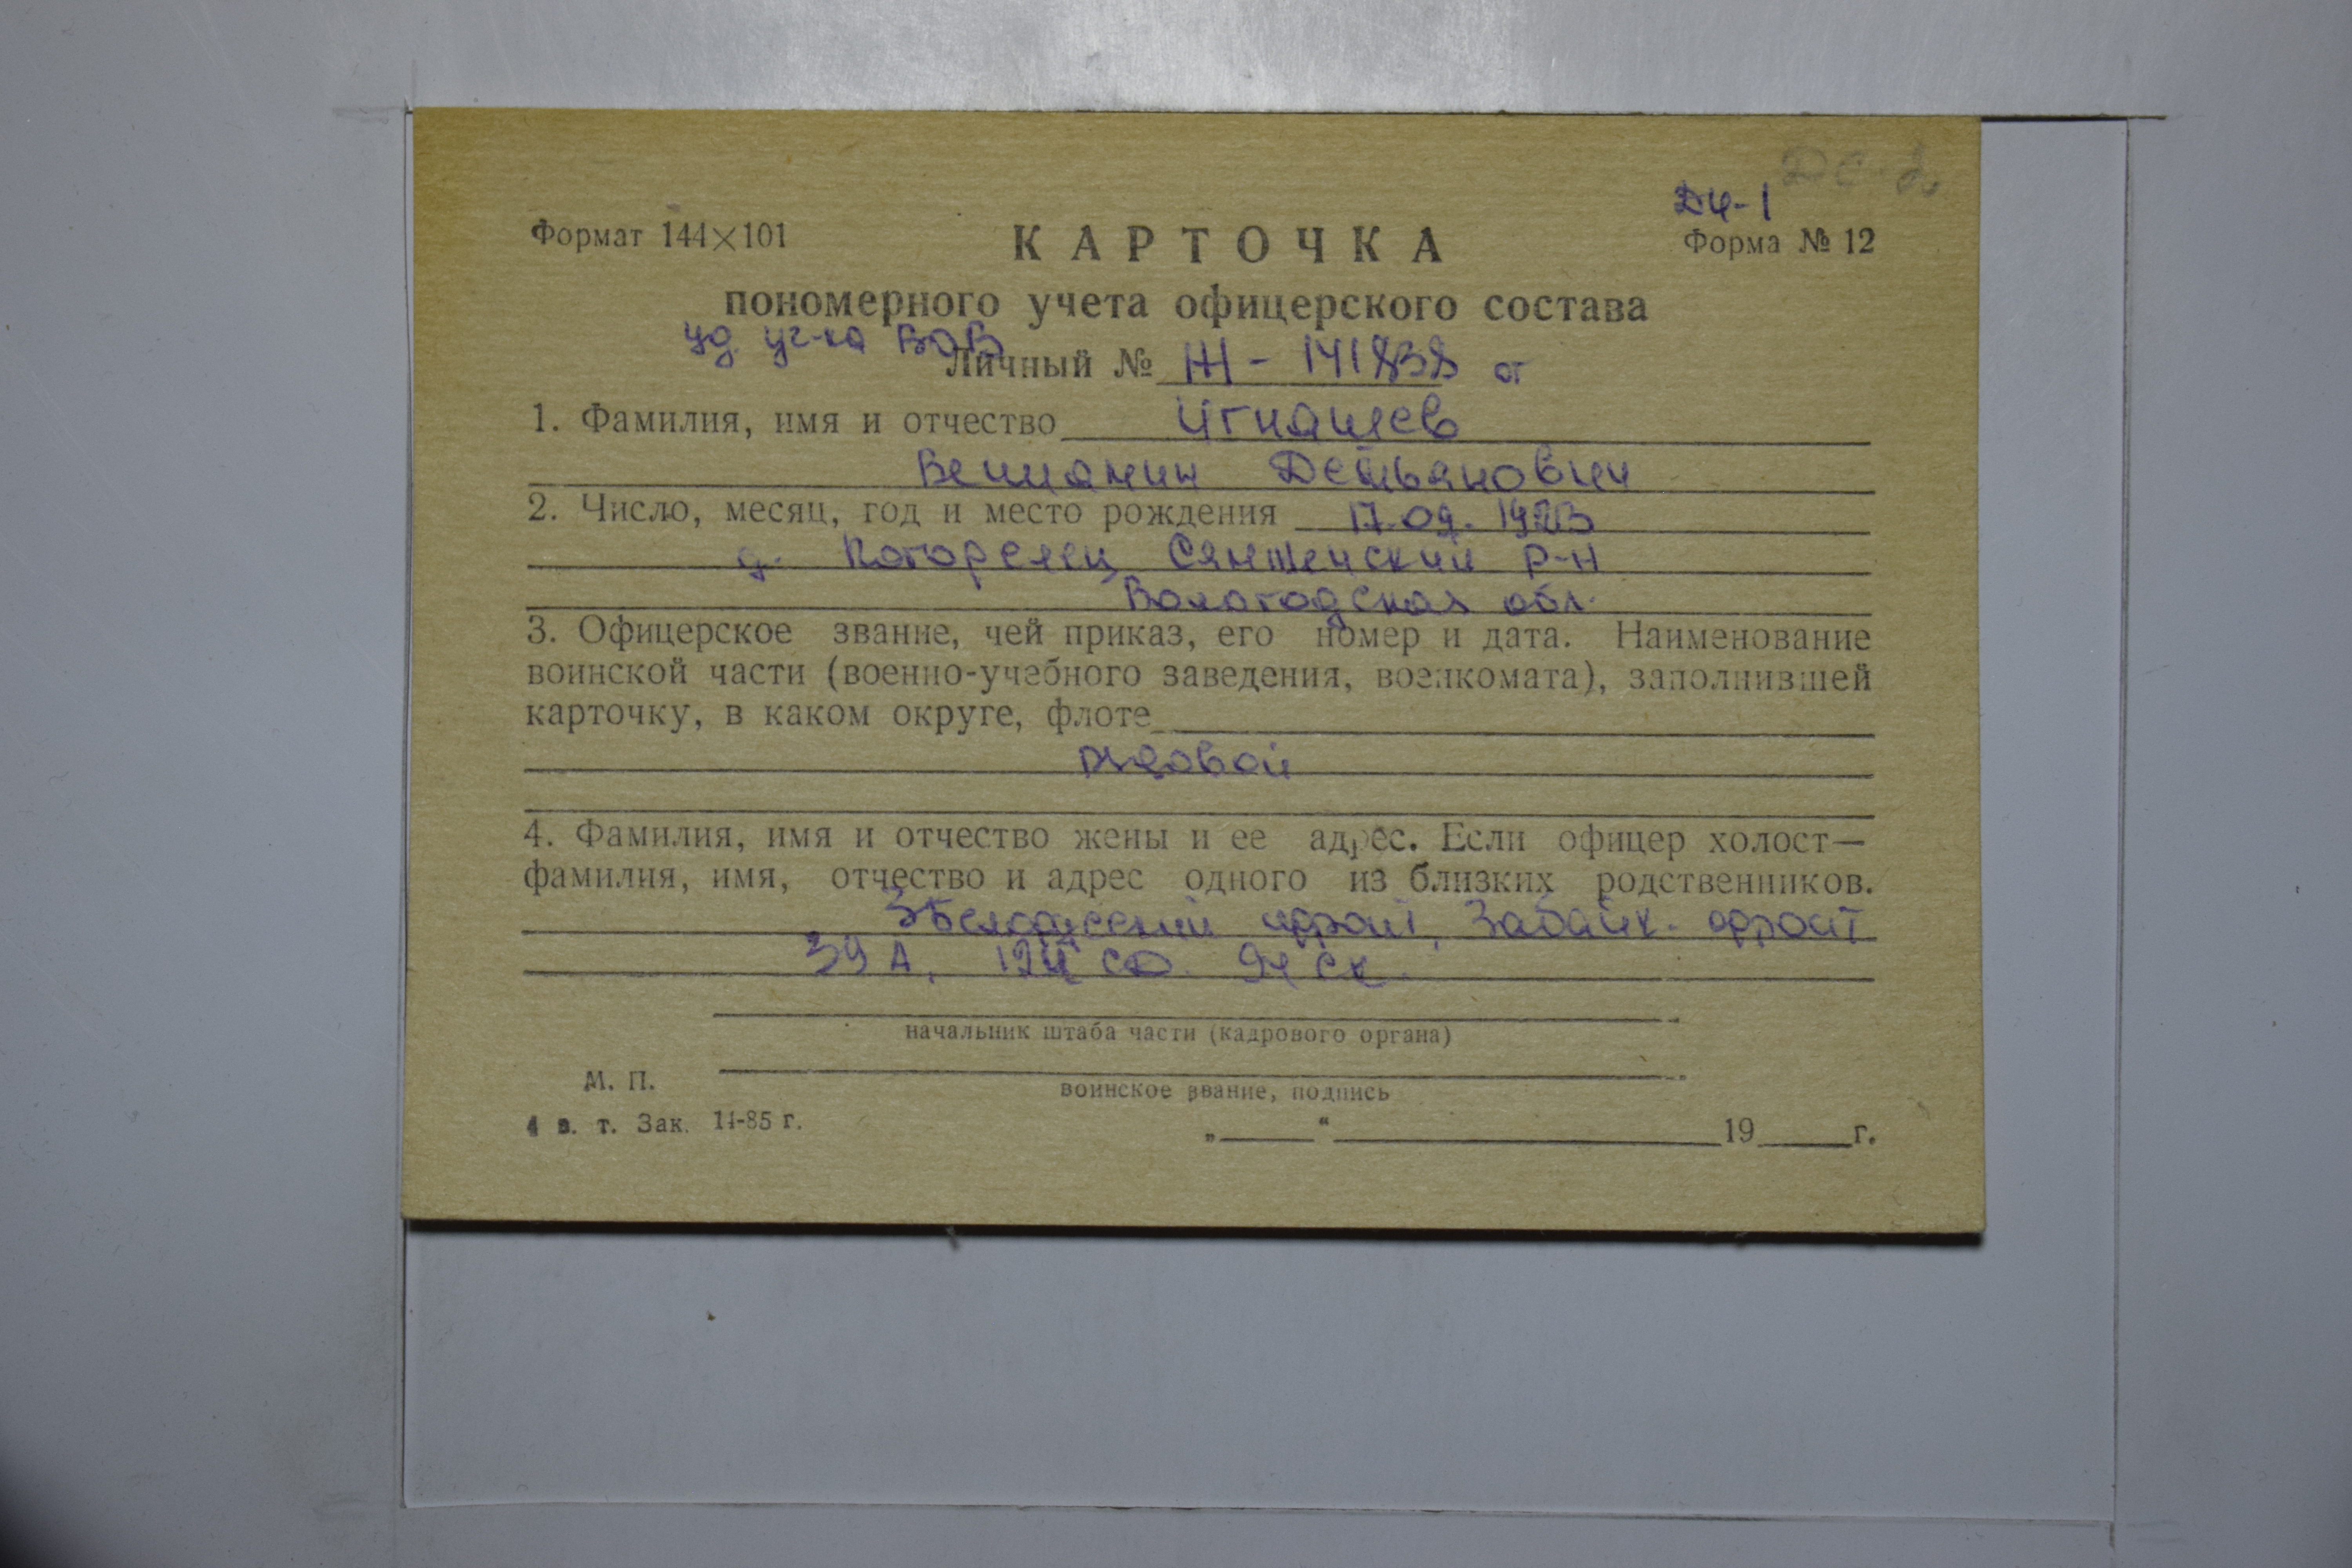 ДС-2
ДЧ-1
Формат 144×101
КАРТОЧКА
Форма № 12
пономерного учета офицерского состава
уд. уч-ка ВОВ
Личный № Ж - 141838 от
1. Фамилия, имя и отчество Игнашев
Вениамин Демьянович
2. Число, месяц, год и место рождения 17.09.1923
д. Погорелец Сямженский р-н
Вологодская обл.
3. Офицерское звание, чей приказ, его номер и дата. Наименование
воинской части (военно-учебного заведения, военкомата), заполнившей
карточку, в каком округе, флоте
рядовой
4. Фамилия, имя и отчество жены и ее адрес. Если офицер холост—
фамилия, имя, отчество и адрес одного из близких родственников.
3 Белорусский фронт, Забайк. фронт
39 А, 124 СД. 94 СК.
начальник штаба части (кадрового органа)
М. П.
воинское звание, подпись
4 в. т. Зак. 14-85 г.
„ “ 19 г.